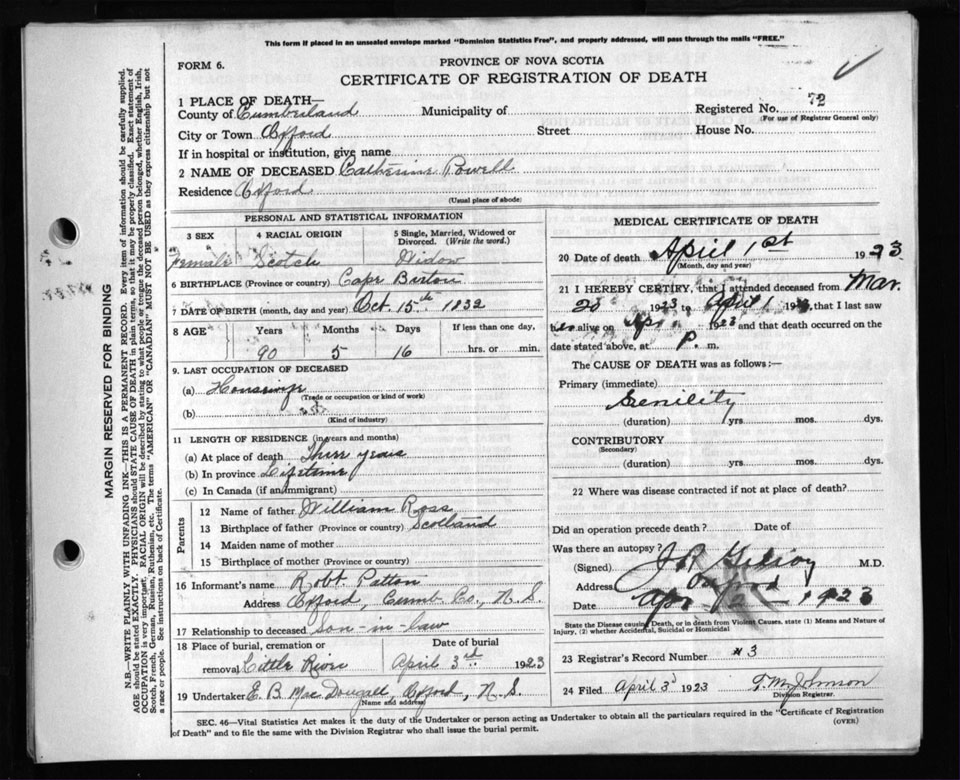 This form if placed in an unsealed envelope marked "Dominion Statistics Free", and properly addressed, will pass through the mails "FREE."
FORM 6.
PROVINCE OF NOVA SCOTIA
CERTIFICATE OF REGISTRATION OF DEATH
1 PLACE OF DEATH—
County of Cumberland Municipality of Registered No. 72
(For use of Registrar General only)
City or Town Oxford Street House No.
If in hospital or institution, give name
2 NAME OF DECEASED Catherine Powell
Residence Oxford
(Usual place of abode)
PERSONAL AND STATISTICAL INFORMATION
3 SEX 4 RACIAL ORIGIN 5 Single, Married, Widowed or Divorced. (Write the word.)
Female Scotch Widow
6 BIRTHPLACE (Province or country) Cape Breton
7 DATE OF BIRTH (month, day and year) Oct. 15th 1832
8 AGE Years Months Days If less than one day,
90 5 16 hrs. or min.
9. LAST OCCUPATION OF DECEASED
(a)
(Trade or occupation or kind of work)
(b)
(Kind of industry)
11 LENGTH OF RESIDENCE (in years and months)
(a) At place of death Three years
(b) In province Lifetime
(c) In Canada (if an immigrant)
Parents
12 Name of father William Ross
13 Birthplace of father (Province or country) Scotland
14 Maiden name of mother
15 Birthplace of mother (Province or country)
16 Informant's name Robt. Patton
Address Oxford, Cumb. Co., N. S.
17 Relationship to deceased Son-in-law
18 Place of burial, cremation or removal Little River
Date of burial April 3rd 1923
19 Undertaker E. B. MacDougall, Oxford, N. S.
(Name and address)
MEDICAL CERTIFICATE OF DEATH
20 Date of death April 1st 1923
(Month, day and year)
21 I HEREBY CERTIFY, that I attended deceased from Mar.
20 1923 to April 1 19 , that I last saw
her alive on Apr 1923 and that death occurred on the
date stated above, at P. m.
The CAUSE OF DEATH was as follows:—
Primary (immediate)
Senility
(duration) yrs mos. dys.
CONTRIBUTORY
(Secondary)
(duration) yrs. mos. dys.
22 Where was disease contracted if not at place of death?
Did an operation precede death? Date of
Was there an autopsy?
(Signed) M.D.
Address Oxford
Date Apr 2 1923
State the Disease causing Death, or in death from Violent Causes, state (1) Means and Nature of Injury, (2) whether Accidental, Suicidal or Homicidal
23 Registrar's Record Number 3
24 Filed April 3d 1923 T. M. Johnson
Division Registrar.
SEC. 46—Vital Statistics Act makes it the duty of the Undertaker or person acting as Undertaker to obtain all the particulars required in the "Certificate of Registration
of Death" and to file the same with the Division Registrar who shall issue the burial permit.
(OVER)
MARGIN RESERVED FOR BINDING
N.B.—WRITE PLAINLY WITH UNFADING INK—THIS IS A PERMANENT RECORD. Every item of information should be carefully supplied.
AGE should be stated EXACTLY. PHYSICIANS should STATE CAUSE OF DEATH in plain terms, so that it may be properly classified. Exact statement of
OCCUPATION is very important. RACIAL ORIGIN will be described by stating to what people or tongue the deceased person belonged, whether English, Irish,
Scotch, French, German, Russian, Ruthenian, etc. The terms "AMERICAN" OR "CANADIAN" MUST NOT BE USED as they express citizenship but not
a race or people. See instructions on back of Certificate.